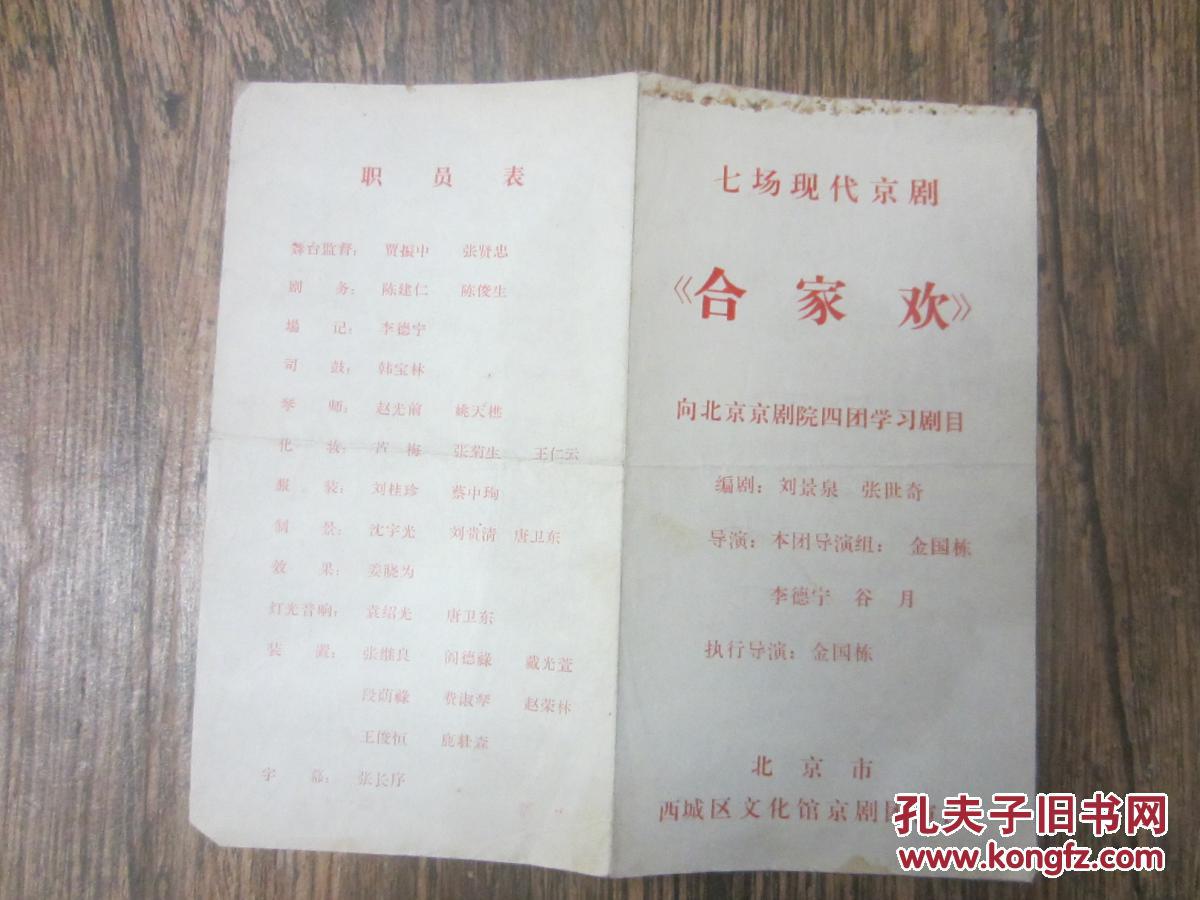 职 员 表
舞台监督： 贾振中 张贤忠
剧 务： 陈建仁 陈俊生
場 记： 李德宁
司 鼓： 韩宝林
琴 师： 赵光前 姚天樵
化 妆： 芦 梅 张菊生 王仁云
服 装： 刘桂珍 蔡中珣
制 景： 沈宇光 刘贵清 唐卫东
效 果： 姜晓为
灯光音响： 袁绍光 唐卫东
装 置： 张维良 阎德禄 戴光萱
段荫禄 费淑琴 赵荣林
王俊恒 鹿壮森
字 幕： 张长序
七场现代京剧
《合家欢》
向北京京剧院四团学习剧目
编剧：刘景泉 张世奇
导演：本团导演组： 金国栋
李德宁 谷 月
执行导演：金国栋
北 京 市
西城区文化馆京剧
孔夫子旧书网
www.kongfz.com